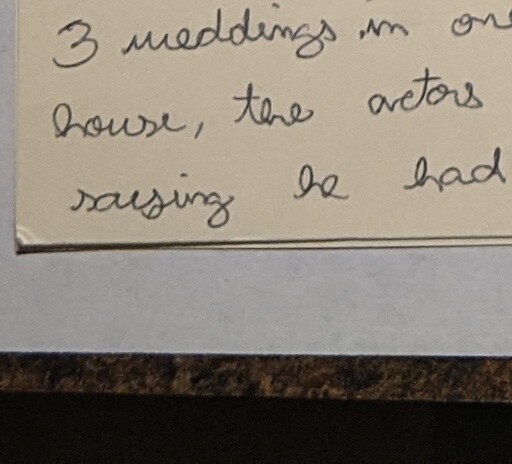 3 weddings in one
house, the actors
saying he had